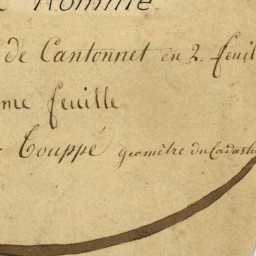 Nommé
de Cantonnet en 2. feuil
me feuille
Touppé geomètre du Cadast